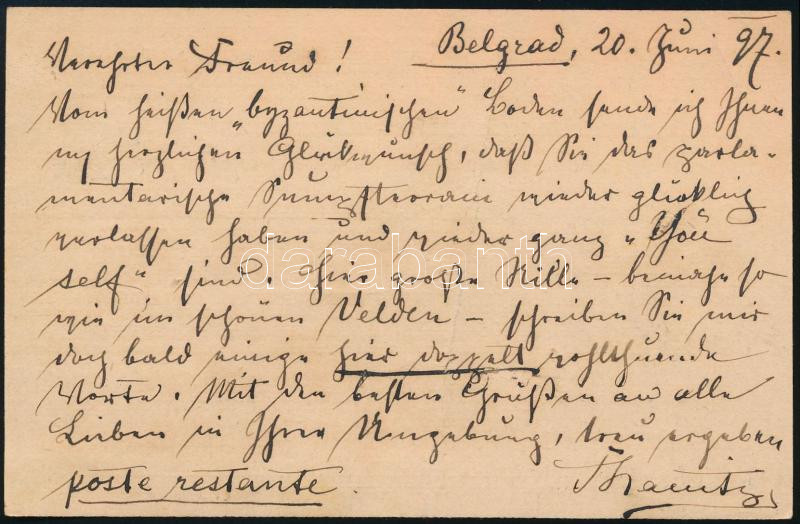 Belgrad, 20. Juni 97.
Verehrter Freund!
Vom heißen „byzantinischen" Boden sende ich Ihnen
m herzlichen Glückwunsch, daß Sie das parla-
mentarische Sumpfterrain wieder glücklich
verlassen haben und wieder ganz „You
self" sind. Hier große Stille – beinahe so
wie im schönen Velden – schreiben Sie mir
doch bald einige hier doppelt wohlthuende
Worte. Mit den besten Grüßen an alle
Lieben in Ihrer Umgebung, treu ergeben
poste restante.
darabanth